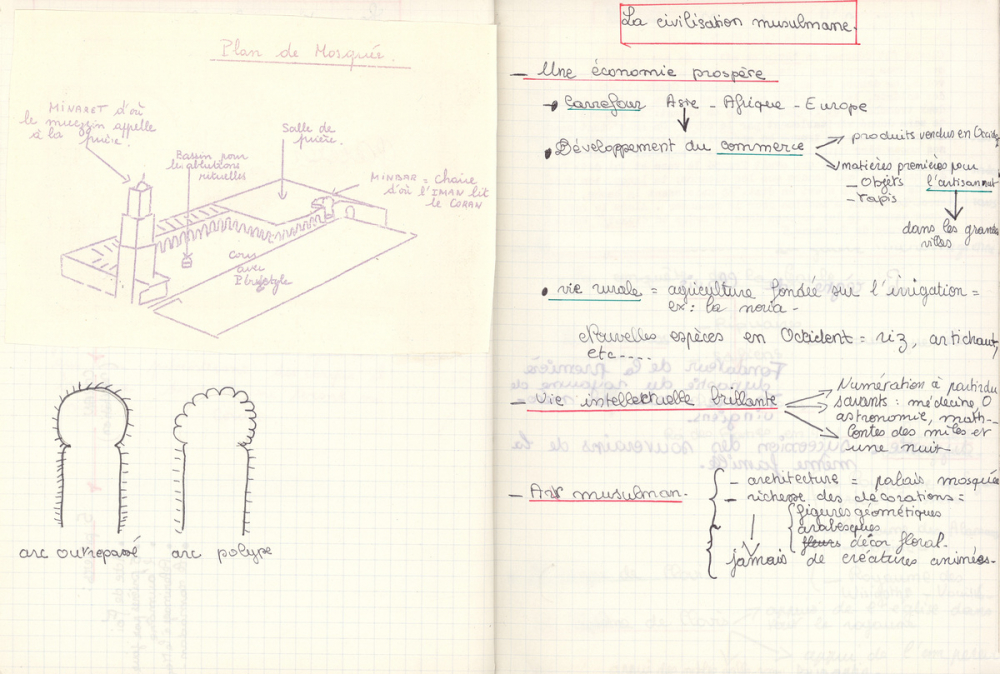 Plan de Mosquée.
MINARET d'où
le muezzin appelle
à la prière.
Salle de
prière.
Bassin pour
les ablutions
rituelles
MINBAR = Chaire
d'où l'IMAN lit
le CORAN
Cour
avec
Péristyle
arc outrepassé
arc polype
La civilisation musulmane.
- Une économie prospère
Carrefour Asie - Afrique - Europe
Développement du commerce
produits vendus en
matières premières pour
- Objets l'artisanat
- Tapis
dans les grandes
villes
vie rurale = agriculture fondée sur l'irrigation =
ex: la noria -
Nouvelles espèces en Occident = riz, artichaut,
etc....
- Vie intellectuelle brillante
Numération à partir du
savants : médecine, 0
astronomie, math--
Contes des milles et
une nuit
- Art musulman.
- architecture = palais mosquée
- richesse des décorations =
figures géométiques
arabesques
fleurs décor floral.
jamais de créatures animées.
Fondateur de la première
dynastie du royaume de
succession des souverains de la
même famille.